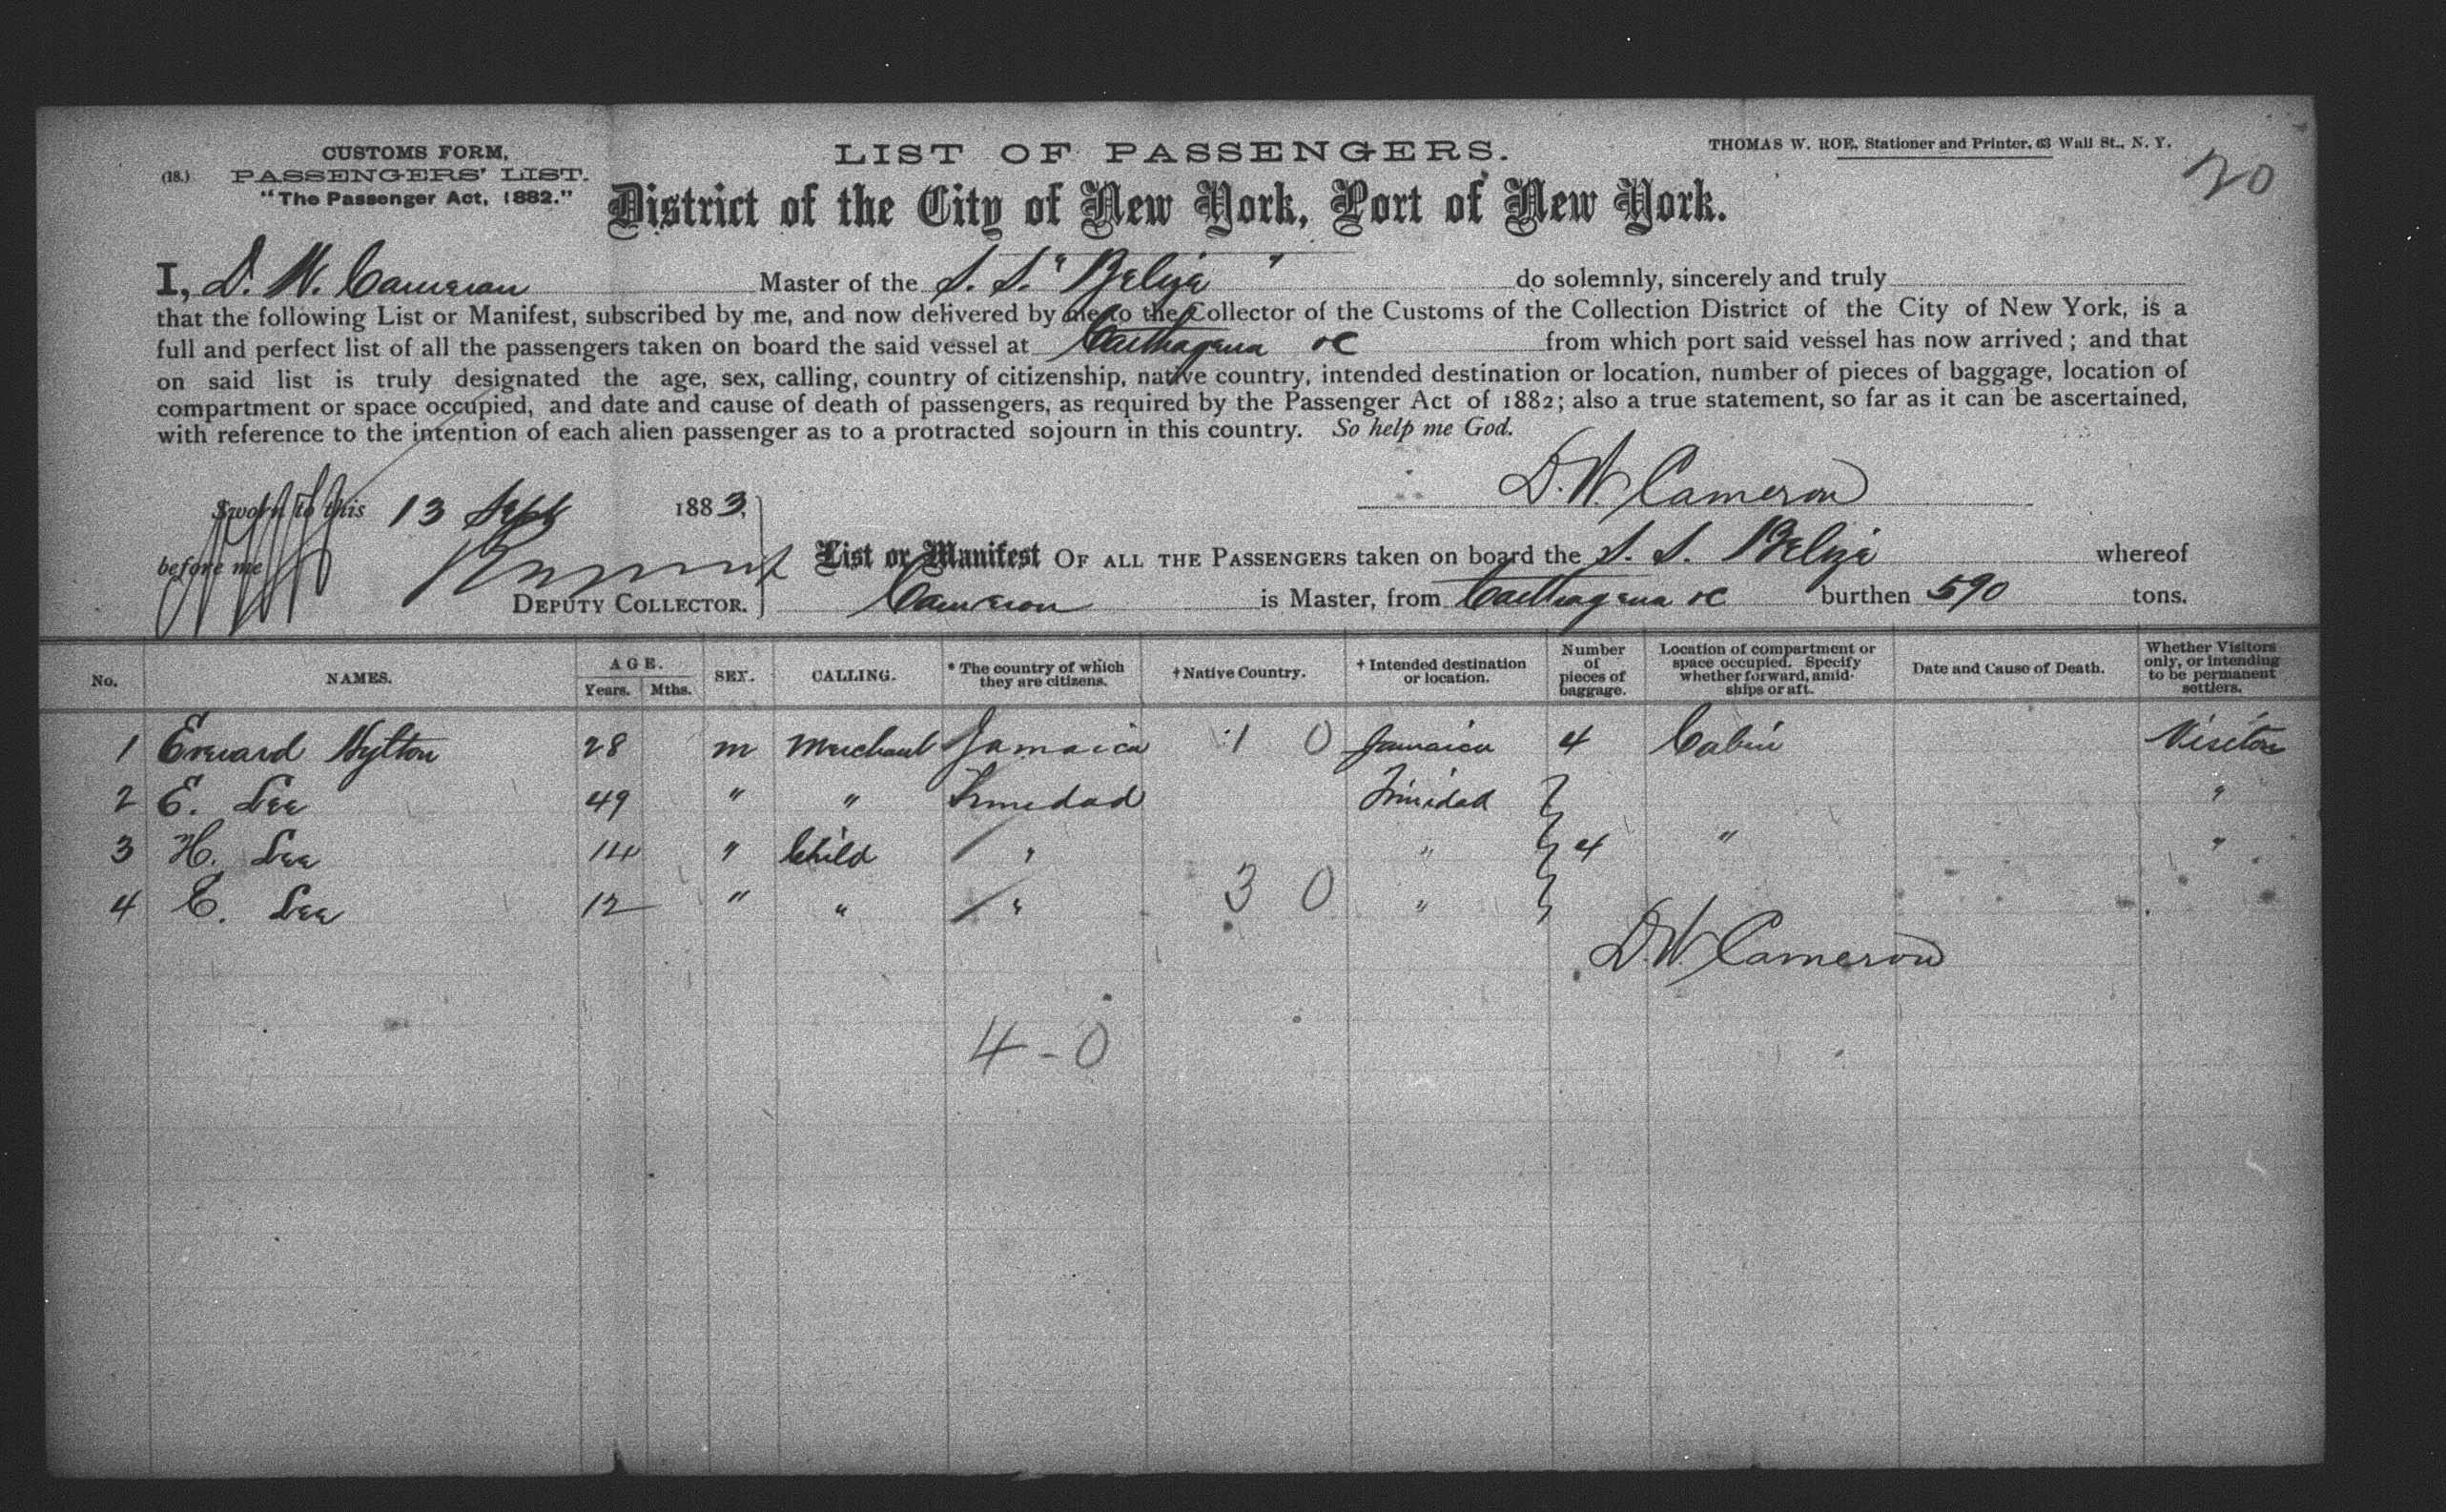 CUSTOMS FORM,
(18.) PASSENGERS' LIST.
"The Passenger Act, 1882."
LIST OF PASSENGERS.
THOMAS W. ROE, Stationer and Printer, 63 Wall St., N. Y.
20
District of the City of New York, Port of New York.
I, D. W. Cameron Master of the S. S. "Belize" do solemnly, sincerely and truly
that the following List or Manifest, subscribed by me, and now delivered by me to the Collector of the Customs of the Collection District of the City of New York, is a
full and perfect list of all the passengers taken on board the said vessel at Carthagena &c from which port said vessel has now arrived; and that
on said list is truly designated the age, sex, calling, country of citizenship, native country, intended destination or location, number of pieces of baggage, location of
compartment or space occupied, and date and cause of death of passengers, as required by the Passenger Act of 1882; also a true statement, so far as it can be ascertained,
with reference to the intention of each alien passenger as to a protracted sojourn in this country. So help me God.
D. W. Cameron
Sworn to this 13 Sept 1883,
before me
DEPUTY COLLECTOR.
List or Manifest OF ALL THE PASSENGERS taken on board the S. S. Belize whereof
Cameron is Master, from Carthagena &c burthen 590 tons.
No. NAMES. AGE. Years. Mths. SEX. CALLING. * The country of which they are citizens. † Native Country. † Intended destination or location. Number of pieces of baggage. Location of compartment or space occupied. Specify whether forward, amidships or aft. Date and Cause of Death. Whether Visitors only, or intending to be permanent settlers.
1 Edward Hylton 28 m Merchant Jamaica 1 0 Jamaica 4 Cabin Visitor
2 E. Lee 49 " " Trinidad Trinidad "
3 H. Lee 14 " Child " " 4 " "
4 C. Lee 12 " " " 3 0 "
D. W. Cameron
4 - 0